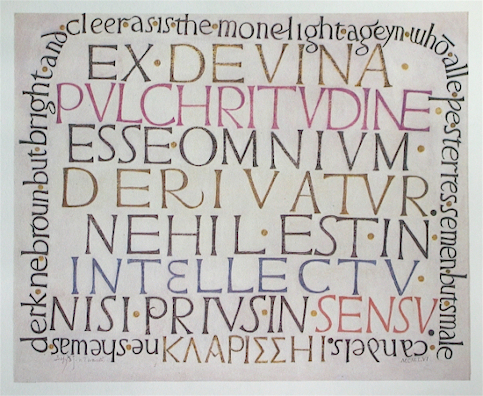 EX·DEVINA·
PVLCHRITVDINE
ESSE·OMNIVM·
DERIVATVR.
NEHIL·EST·IN·
INTELLECTV·
NISI·PRIVS·IN·SENSV·
ΚΛΑΡΙΣΣΗΙ
ne·shewas
derk·ne·broun·but·bright·and
cleer·as·is·the·mone·light·ageyn·whō
alle·þe·sterres·semen·but·smale
candels·